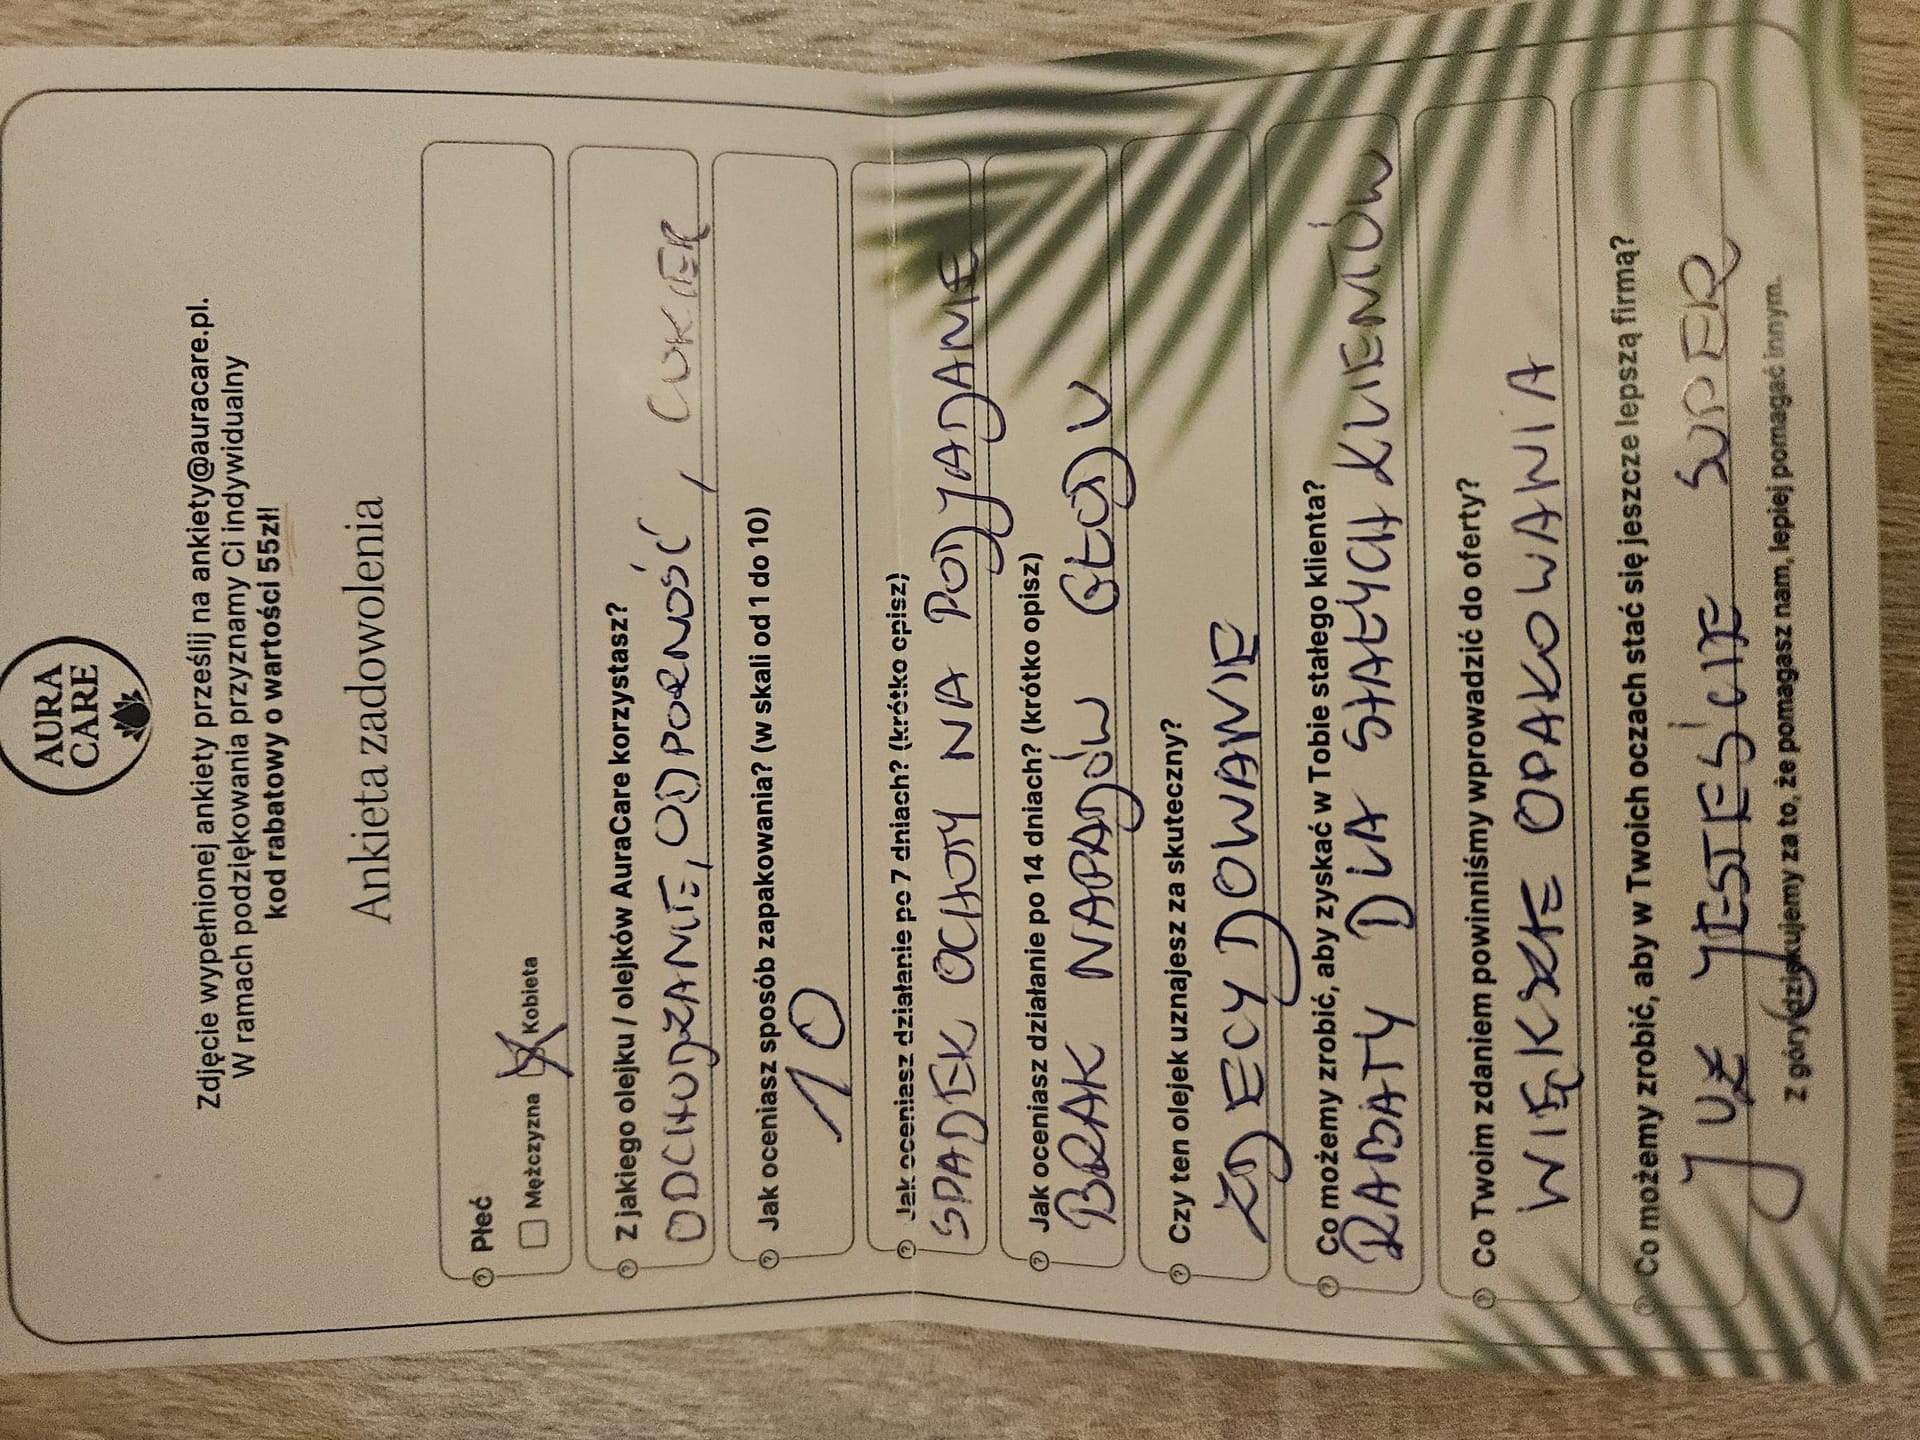 AURA
CARE
Zdjęcie wypełnionej ankiety prześlij na ankiety@auracare.pl.
W ramach podziękowania przyznamy Ci indywidualny
kod rabatowy o wartości 55zł!
Ankieta zadowolenia
Płeć
Mężczyzna Kobieta
Z jakiego olejku / olejków AuraCare korzystasz?
ODCHUDZANIE, ODPORNOŚĆ, CUKIER
Jak oceniasz sposób zapakowania? (w skali od 1 do 10)
10
Jak oceniasz działanie po 7 dniach? (krótko opisz)
SPADEK OCHOTY NA PODJADANIE
Jak oceniasz działanie po 14 dniach? (krótko opisz)
BRAK NAPADÓW GŁODU
Czy ten olejek uznajesz za skuteczny?
ZDECYDOWANIE
Co możemy zrobić, aby zyskać w Tobie stałego klienta?
RABATY DLA STAŁYCH KLIENTÓW
Co Twoim zdaniem powinniśmy wprowadzić do oferty?
WIĘKSZE OPAKOWANIA
Co możemy zrobić, aby w Twoich oczach stać się jeszcze lepszą firmą?
JUŻ JESTEŚCIE SUPER
Z góry dziękujemy za to, że pomagasz nam, lepiej pomagać innym.